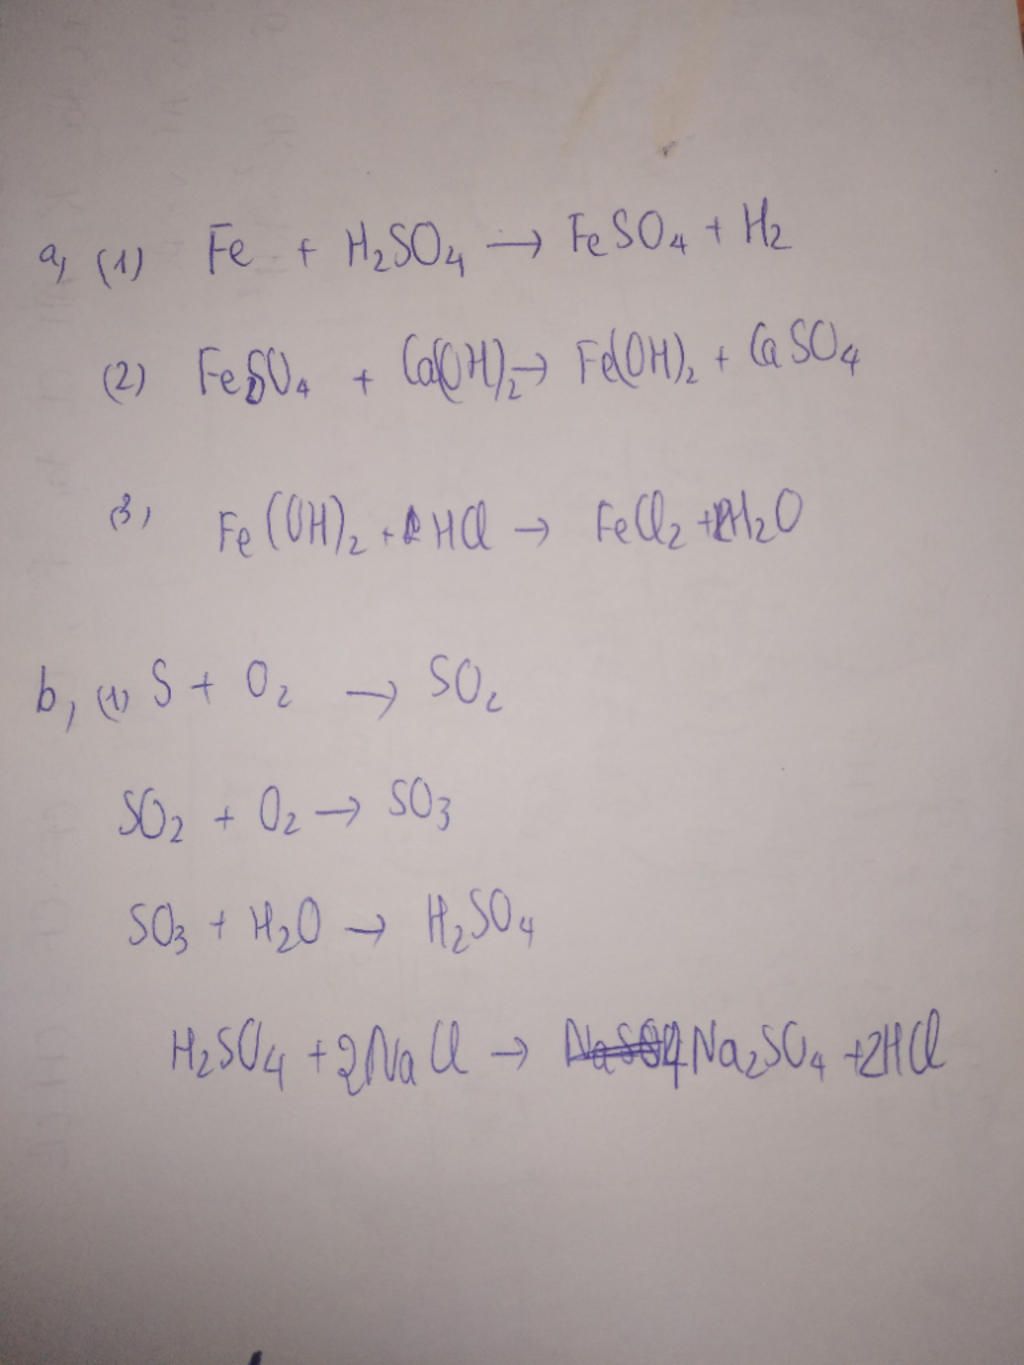 a, (1) Fe + H₂SO₄ → FeSO₄ + H₂
(2) FeSO₄ + Ca(OH)₂ → Fe(OH)₂ + CaSO₄
(3) Fe(OH)₂ + 2HCl → FeCl₂ + 2H₂O
b, (1) S + O₂ → SO₂
SO₂ + O₂ → SO₃
SO₃ + H₂O → H₂SO₄
H₂SO₄ + 2NaCl → Na₂SO₄ + 2HCl